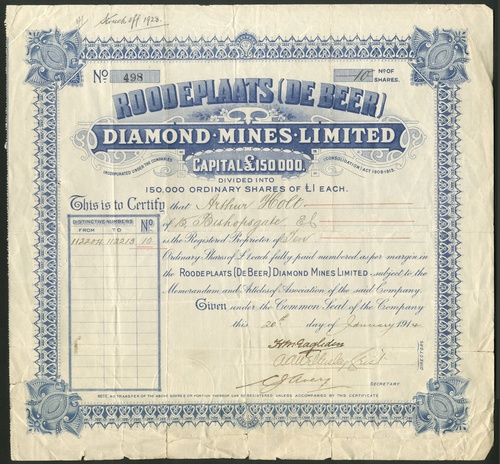 Struck off 1928.
No 498
10 No OF SHARES.
ROODEPLAATS (DE BEER)
DIAMOND · MINES · LIMITED
INCORPORATED UNDER THE COMPANIES CONSOLIDATION ACT 1908-1913.
CAPITAL £150000.
DIVIDED INTO
150,000 ORDINARY SHARES OF £1 EACH.
This is to Certify that Arthur Holt
of Bishopsgate E.C.
is the Registered Proprietor of Ten
Ordinary Shares of £1 each fully paid numbered as per margin in
the ROODEPLAATS (DE BEER) DIAMOND MINES LIMITED subject to the
Memorandum and Articles of Association of the said Company.
Given under the Common Seal of the Company
this 20th day of January 1914
DISTINCTIVE NUMBERS No
FROM TO
112204 112213 10
DIRECTORS
SECRETARY.
NOTE. NO TRANSFER OF THE ABOVE SHARES OR PORTION THEREOF CAN BE REGISTERED UNLESS ACCOMPANIED BY THIS CERTIFICATE.